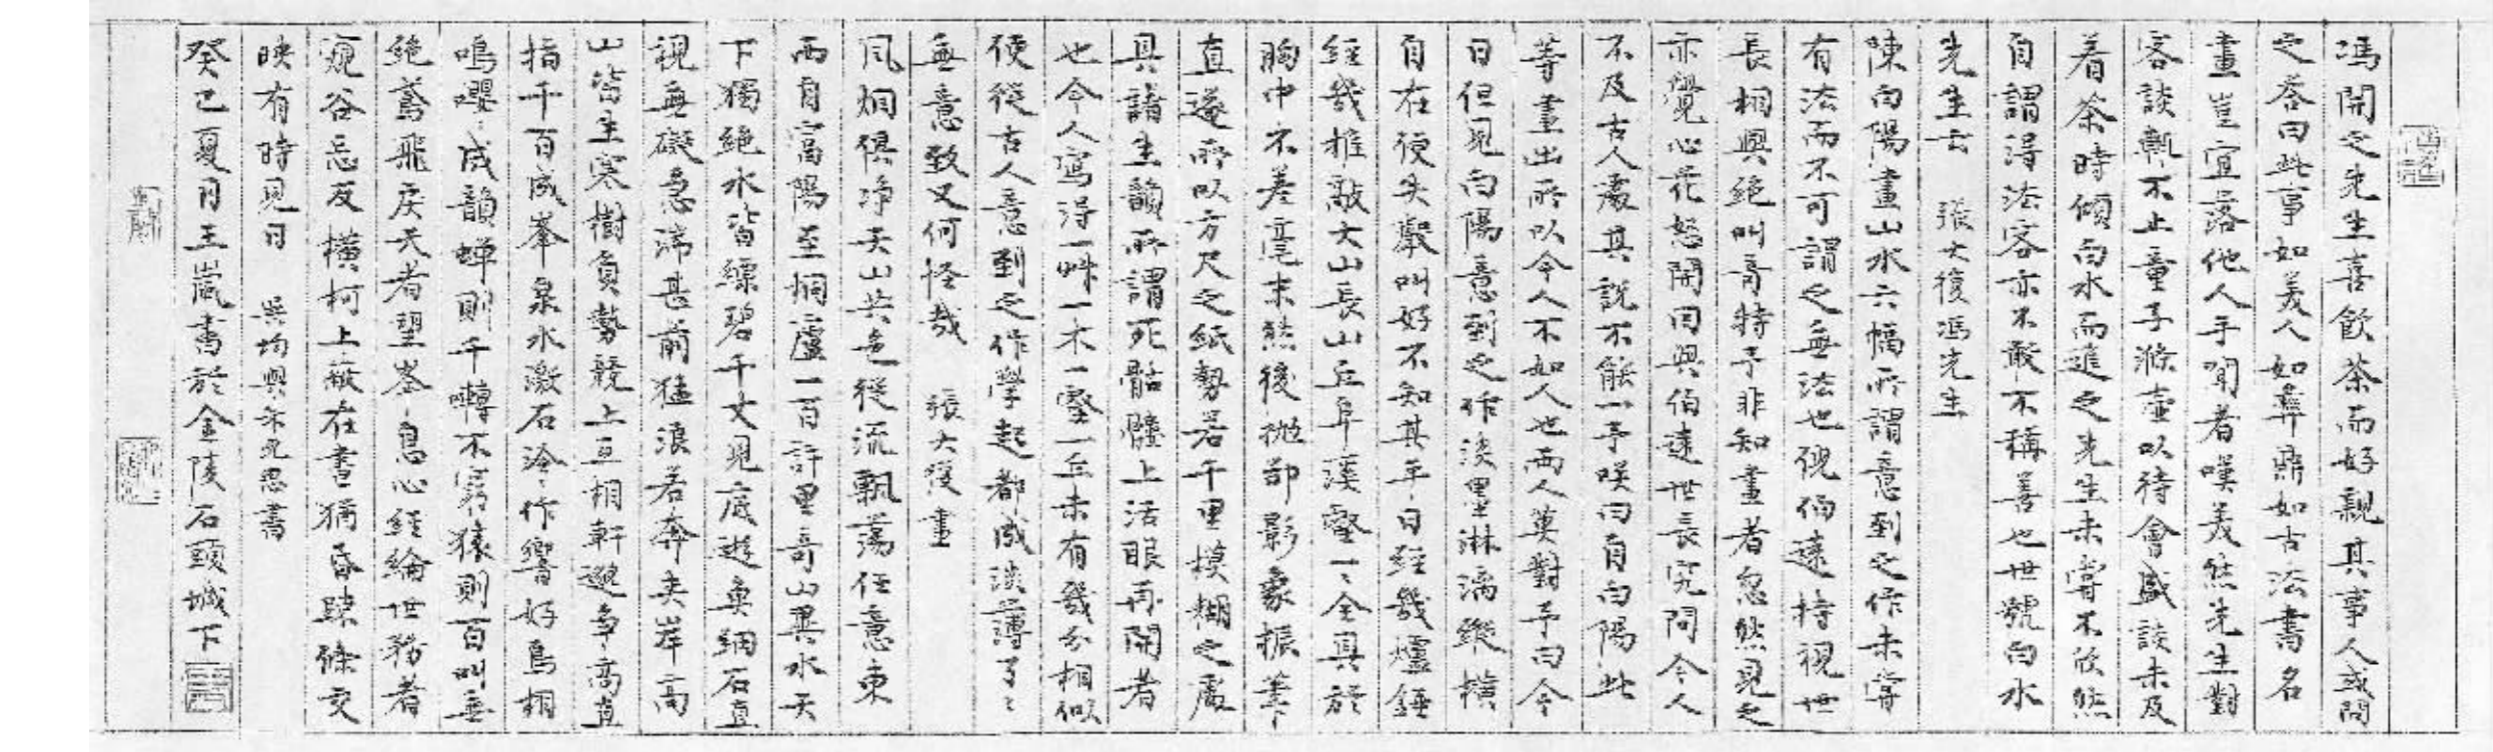 馮開之先生喜飲茶而好親其事人或問
之答曰此事如美人如彝鼎如古法書名
畫豈宜落他人手聞者嘆美然先生對
客談輒不止童子滌壺以待會盛談未及
着茶時傾白水而進之先生未嘗不欣然
自謂得法客亦不敢不稱善也世號白水
先生云 張大復馮先生
陳向陽畫山水六幅所謂意到之作未嘗
有法而不可謂之無法也倪伯遠持視世
長相與絕叫奇特予非知畫者忽然見之
亦覺心花怒開因與伯遠世長究問今人
不及古人處其說不能一予咲曰自向陽此
等畫出所以今人不如人也兩人莫對予曰今
日但見向陽意到之作淡墨淋漓縱橫
自在便失聲叫好不知其平日經幾爐錘
經幾推敲大山長山丘阜溪壑一〻全具於
胸中不差毫末然後拋却影象振筆
直遂所以方尺之紙勢若千里模糊之處
具諸生韻所謂死骷髏上活眼再開者
也今人寫得一咮一木一壑一丘未有幾分相似
便從古人意到之作學起都成淡薄了〻
無意致又何怪哉 張大復畫
風烟俱净天山共色從流飄蕩任意東
西自富陽至桐廬一百許里奇山異水天
下獨絕水皆縹碧千丈見底遊魚細石直
視無礙急湍甚前猛浪若奔夾岸高
山皆生寒樹負勢競上互相軒邈爭高直
指千百成峯泉水激石泠〻作響好鳥相
鳴嚶〻成韻蟬則千囀不窮猿則百叫無
絕鳶飛戾天者望峯息心經綸世務者
窺谷忘反橫柯上蔽在晝猶昏踈條交
映有時見日 吳均與宋元思書
癸巳夏月王嵐書於金陵石頭城下